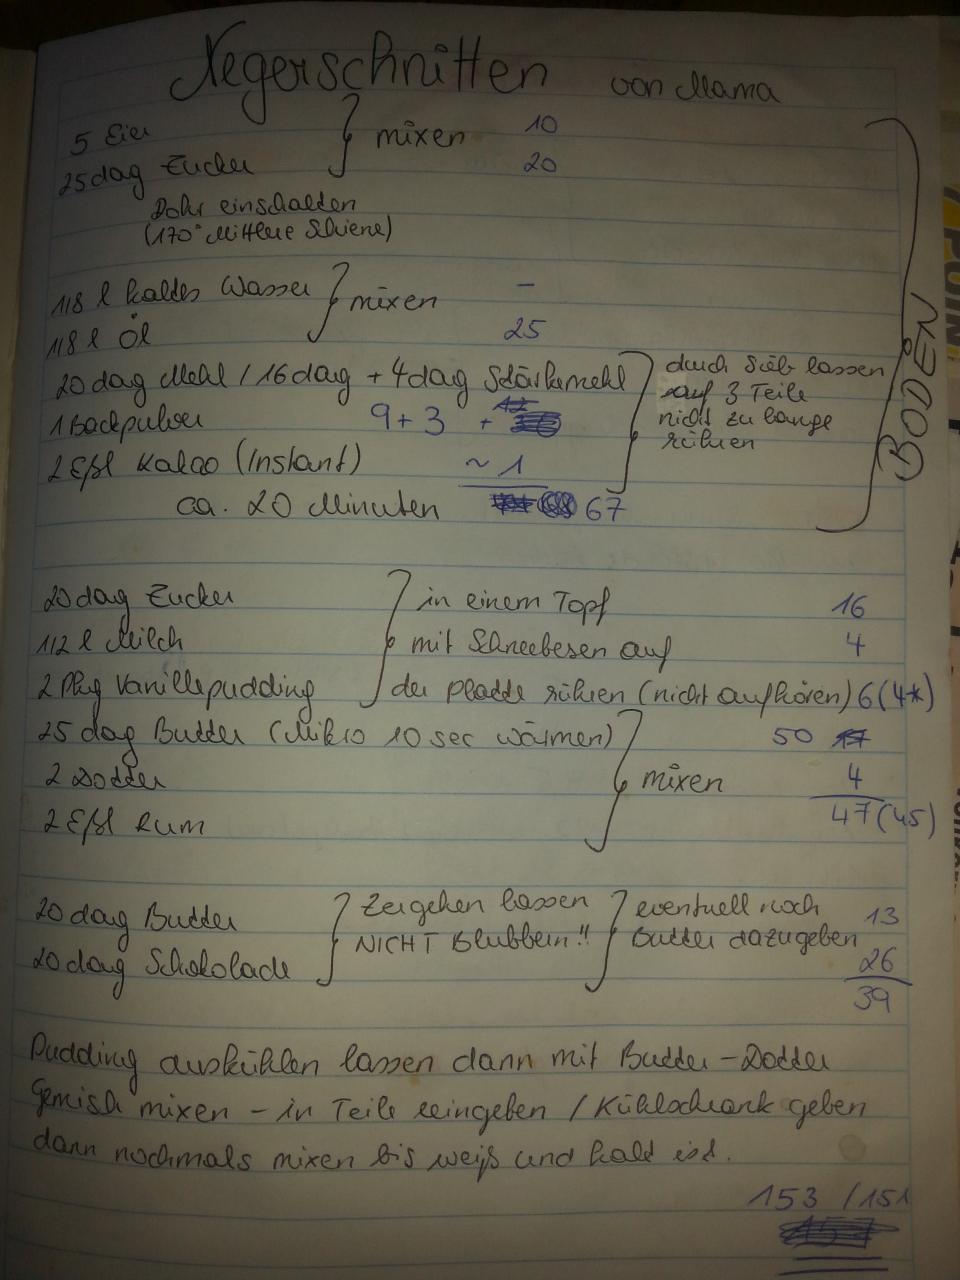 Negerschnitten von Mama
5 Eier } mixen 10
25 dag Zucker 20
Rohr einschalten
(170° Mittlere Schiene)
1/8 l kaltes Wasser } mixen –
1/8 l Öl 25
20 dag Mehl / 16 dag + 4 dag Stärkemehl } durch Sieb lassen
auf 3 Teile
1 Backpulver 9 + 3 + 12 nicht zu lange
rühren
2 Eßl Kakao (Instant) ~ 1
ca. 20 Minuten 67
BODEN
20 dag Zucker } in einem Topf 16
1/2 l Milch mit Schneebesen auf 4
2 Pkg Vanillepudding der Pladde rühren (nicht aufhören) 6 (4*)
25 dag Budder (Mikro 10 sec wärmen) } 50 17
2 Dodder mixen 4
2 Eßl Rum 47 (45)
20 dag Budder } Zergehen lassen } eventuell noch 13
20 dag Schokolade NICHT Blubbern!! Budder dazugeben 26
39
Pudding auskühlen lassen dann mit Budder-Dodder
Gemisch mixen – in Teile reingeben / Kühlschrank geben
dann nochmals mixen bis weiß und kald isd.
153 / 151